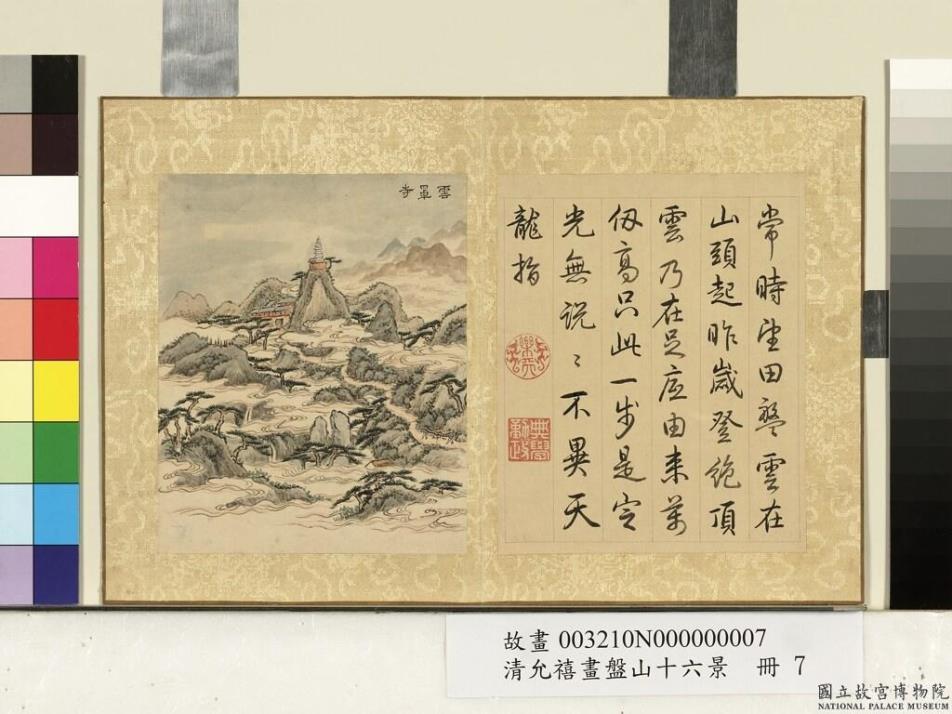 常時望田盤雲在
山頭起昨歲登絕頂
雲乃在足底由來萬
仭高只此一步是空
光無說〻不異天
龍指
典學勤政
雲罩寺
故畫 003210N000000007
清允禧畫盤山十六景 冊 7
國立故宮博物院
NATIONAL PALACE MUSEUM